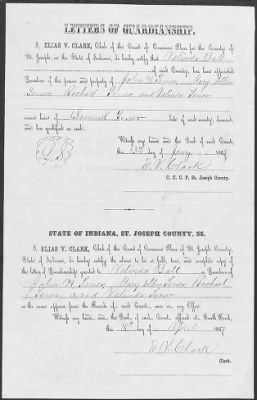 LETTERS OF GUARDIANSHIP.
I, ELIAS V. CLARK, Clerk of the Court of Common Pleas for the County of
St. Joseph, in the State of Indiana, do hereby certify that Valinda Ball
of said County, has been appointed
Guardian of the person and property of
and Valinda Tener
minor heirs of Samuel Tener, late of said county, deceased,
and has qualified as such.
Witness my hand and the Seal of said Court,
this day of
E. V. Clark
C. C. C. P. St. Joseph County.
STATE OF INDIANA, ST. JOSEPH COUNTY, SS.
I, ELIAS V. CLARK, Clerk of the Court of Common Pleas of St. Joseph County,
State of Indiana, do hereby certify the above to be a full, true, and complete copy of
the letters of Guardianship granted to Valinda Ball as Guardian of
Tener Mary Ellen Tener Rachael
Tener and Valinda Tener
as the same appears from the Records of said Court, now in my Office.
Witness my hand and the Seal of said Court, affixed at South Bend,
this day of April
E. V. Clark
Clerk.